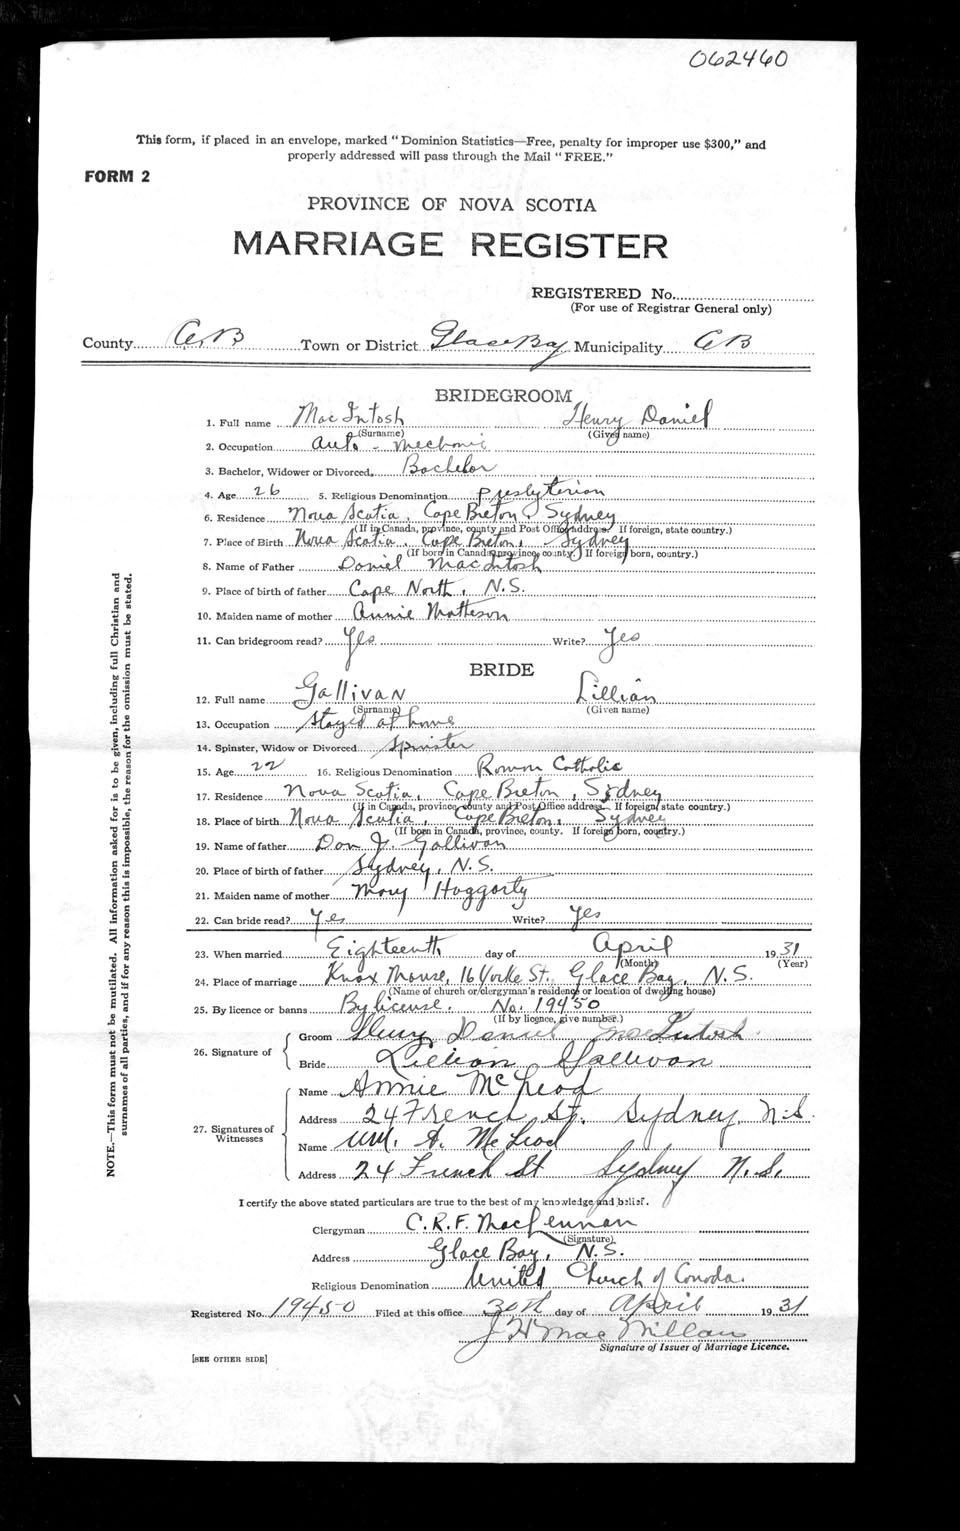 062460
This form, if placed in an envelope, marked "Dominion Statistics—Free, penalty for improper use $300," and
properly addressed will pass through the Mail "FREE."
FORM 2
PROVINCE OF NOVA SCOTIA
MARRIAGE REGISTER
REGISTERED No.
(For use of Registrar General only)
County C.B Town or District Glace Bay Municipality C B
BRIDEGROOM
1. Full name MacIntosh Henry Daniel
(Surname) (Given name)
2. Occupation Auto-Mechanic
3. Bachelor, Widower or Divorced Bachelor
4. Age 26 5. Religious Denomination Presbyterian
6. Residence Nova Scotia, Cape Breton, Sydney
(If in Canada, province, county and Post Office address. If foreign, state country.)
7. Place of Birth Nova Scotia, Cape Breton, Sydney
(If born in Canada, province, county. If foreign born, country.)
8. Name of Father Daniel MacIntosh
9. Place of birth of father Cape North, N.S.
10. Maiden name of mother Annie Matheson
11. Can bridegroom read? Yes Write? Yes
BRIDE
12. Full name Gallivan Lillian
(Surname) (Given name)
13. Occupation Stayed at home
14. Spinster, Widow or Divorced Spinster
15. Age 22 16. Religious Denomination Roman Catholic
17. Residence Nova Scotia, Cape Breton, Sydney
(If in Canada, province, county and Post Office address. If foreign state country.)
18. Place of birth Nova Scotia, Cape Breton, Sydney
(If born in Canada, province, county. If foreign born, country.)
19. Name of father Dan J. Gallivan
20. Place of birth of father Sydney, N.S.
21. Maiden name of mother Mary Haggarty
22. Can bride read? Yes Write? Yes
23. When married Eighteenth day of April 1931
(Month) (Year)
24. Place of marriage Knox Manse, 16 Yorke St., Glace Bay, N.S.
(Name of church or clergyman's residence or location of dwelling house)
25. By licence or banns By license. No. 19450
(If by licence, give number.)
26. Signature of
Groom Henry Daniel MacIntosh
Bride Lillian Gallivan
27. Signatures of Witnesses
Name Annie McLeod
Address 24 French St., Sydney, N.S.
Name Wm. A. McLeod
Address 24 French St Sydney N.S.
I certify the above stated particulars are true to the best of my knowledge and belief.
Clergyman C.R.F. MacLennan
(Signature)
Address Glace Bay, N.S.
Religious Denomination United Church of Canada.
Registered No. 19450 Filed at this office 30th day of April 1931
J H MacMillan
Signature of Issuer of Marriage Licence.
[SEE OTHER SIDE]
NOTE.—This form must not be mutilated. All information asked for is to be given, including full Christian and
surnames of all parties, and if for any reason this is impossible, the reason for the omission must be stated.